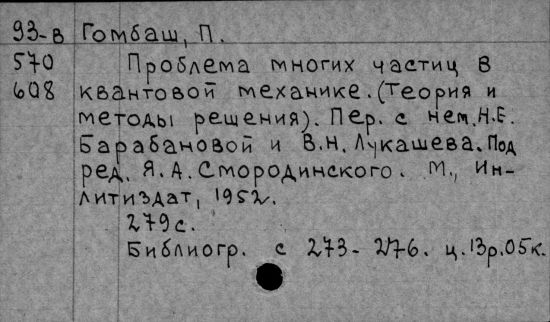 93-в Гомбаш, П.
570 Проблема многих частиц в
608 квантовой механике. (Теория и
методы решения). Пер. с нем. Н.Е.
Барабановой и В.Н. Лукашева. Под
ред. Я.А. Смородинского. М., Ин-
литиздат, 1952.
279 с.
Библиогр. с 273-276. ц. 13р. 05к.